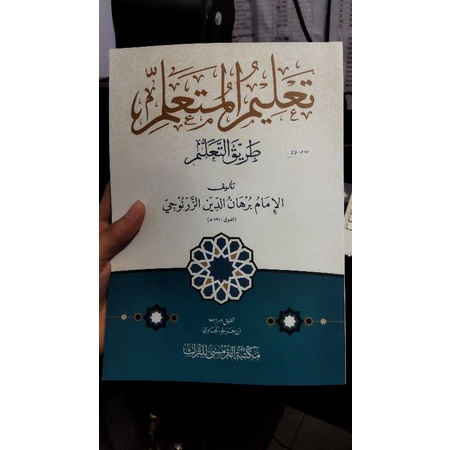 تَعْلِيمُ الْمُتَعَلِّمِ
طَرِيقَ التَّعَلُّمِ
تأليف
الإِمَامُ بُرْهَانُ الدِّيْن الزَّرْنُوْجِيّ
مكتبة الترمسي للتراث